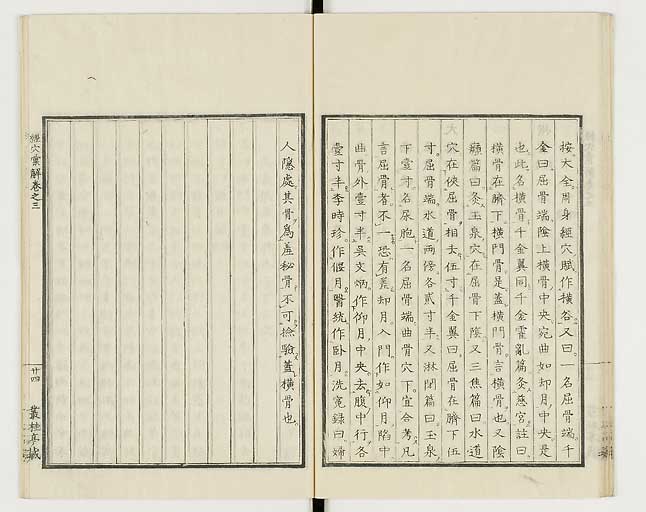 按大全周身經穴賦作橫谷又曰一名屈骨端千
金曰屈骨端陰上橫骨中央宛曲如却月中央是
也此名橫骨千金翼同千金霍亂篇灸慈宮註曰
橫骨在臍下橫門骨是蓋橫門骨言橫骨也又陰
㿉篇曰灸玉泉穴在屈骨下陰又三焦篇曰水道
穴在俠屈骨相去伍寸千金翼曰屈骨在臍下伍
寸屈骨端水道兩傍各貳寸半又淋閉篇曰玉泉
下壹寸名尿胞一名屈骨端曲骨穴下宜合考凡
言屈骨者不一恐有差却月入門作如仰月陷中
曲骨外壹寸半吳文炳作仰月中央去腹中行各
壹寸半李時珍作偃月醫統作卧月洗寃錄曰婦
人隱處其骨爲羞秘骨不可撿驗蓋橫骨也
經穴彙解卷之三
廿四
叢桂亭藏